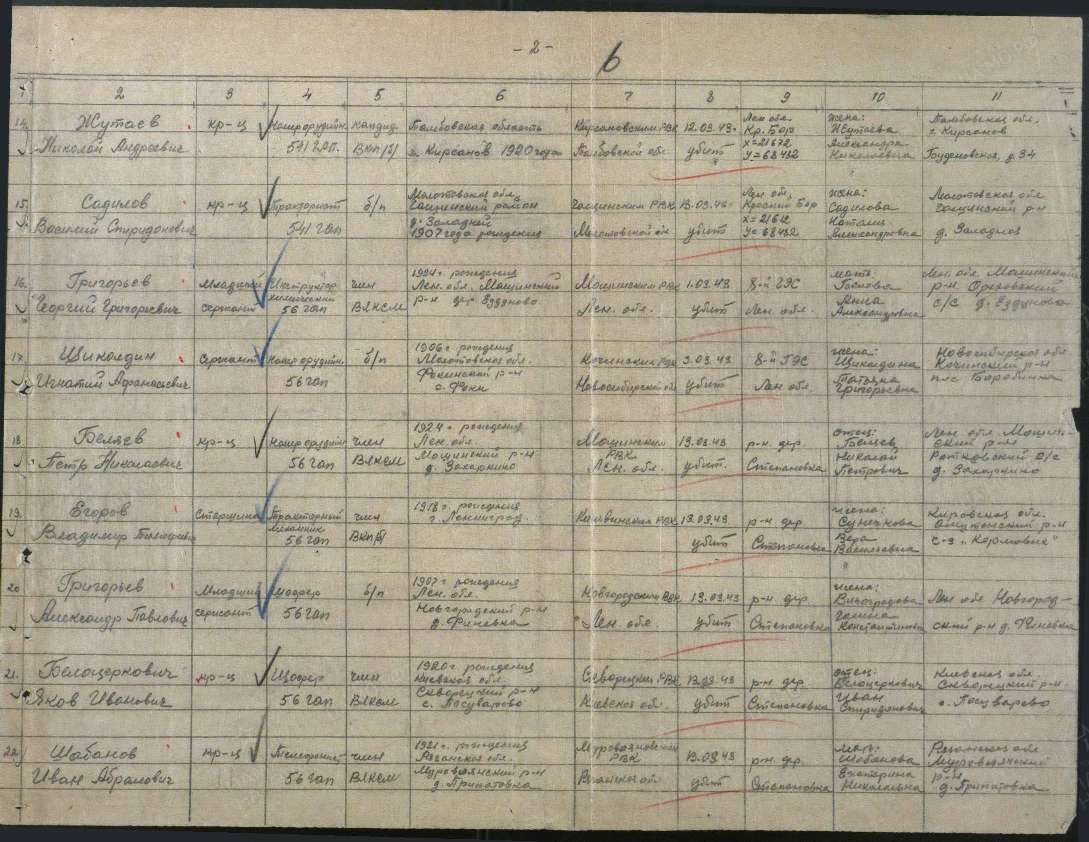 - 2 -
6
1 2 3 4 5 6 7 8 9 10 11
14. Жутаев кр-ц Номер орудийн. кандид. Тамбовская область Кирсановским РВК 12.03.43. Лен. обл. Кр. Бор жена: Жутаева Тамбовская обл. г. Кирсанов
Николай Андреевич 541 ГАП. ВКП(б) г. Кирсанов 1920 года Тамбовской обл. убит X=21672 У=68432 Александра Николаевна Буденовская, д 34
15. Садилов кр-ц Тракторист б/п Молотовская обл. район Частинским РВК 13.03.43. Лен. обл. Красный Бор жена: Садилова Молотовская обл. Частинский р-н
Василий Спиридонович 541 гап 1907 года рождения Молотовской обл убит X=21612 У=68432 Наталия Александровна
16. Григорьев Младший Инструктор химический член 1924 г. рождения Лен. обл. Мошинский Мошинским РВК 1.03.43 8-й ГЭС мать: Лен. обл. Мошинский
Георгий Григорьевич сержант 56 гап ВЛКСМ р-н дер. Ездуново Лен. обл. убит Лен. обл. Анна Александровна р-н с/с д. Ездуново
17. Щиколдин Сержант Номер орудийн. б/п 1906 г. рождения Молотовская обл. РВК 3.03.43 8-й ГЭС жена: Щиколдина Новосибирская обл. р-н
Игнатий Афанасьевич 56 гап Фокинский р-н с. Фоки Новосибирской обл убит Лен обл. Татьяна Григорьевна
18. Беляев кр-ц Номер орудийн член 1924 г. рождения Лен. обл. Мошинским РВК 13.03.43 р-н дер. отец: Беляев Лен. обл. Мошин-
Петр Николаевич 56 гап ВЛКСМ Мошинский р-н д. Захаркино Лен. обл. убит. Степановка Николай Петрович ский р-н с/с д. Захаркино
19. Егоров Старшина Тракторный механник член 1918 г. рождения г. Ленинград. РВК 13.03.43 р-н дер жена: Кировская обл. р-н
Владимир 56 гап ВКП(б) убит Степановка Вера Васильевна с-з „Кормовик"
20 Григорьев Младший Шофер б/п 1907 г. рождения Лен. обл. Новгородским РВК 13.03.43 р-н дер. жена: Виноградова Лен обл Новгород-
Александр Павлович сержант 56 гап Новгородский р-н д. Финевка Лен. обл. убит Степановка Галина Константиновна ский р-н д. Финевка
21. Белоцеркович кр-ц Шофер член 1920 г. рождения Киевская обл. РВК 13.03.43 р-н дер. отец: Белоцеркович Киевская обл. р-н.
Яков Иванович 56 гап ВЛКСМ р-н Киевской обл. убит Степановка Иван Спиридонович
22. Шабанов кр-ц Телефонист член 1921 г. рождения Рязанская обл. РВК 13.03.43 р-н др. мать: Шабанова Рязанская обл
Иван Абрамович 56 гап ВЛКСМ р-н обл. убит Степановка Екатерина Николаевна р-н